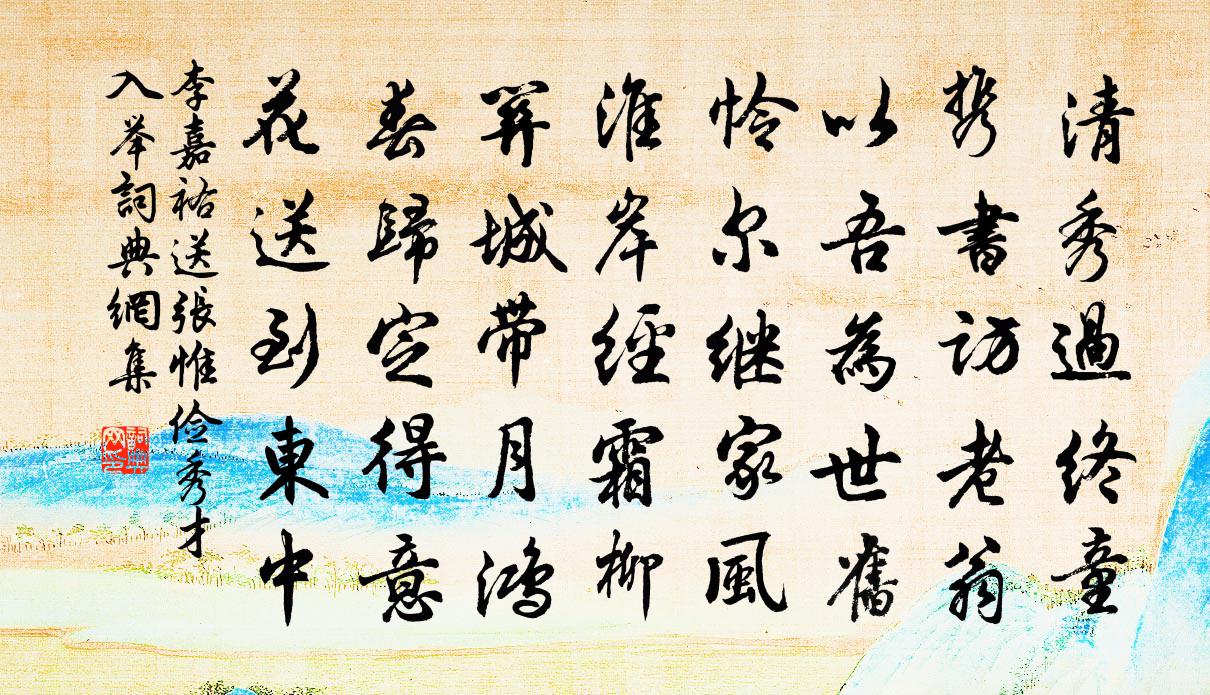 清秀過終童
携書訪老翁
以吾為世舊
怜尔继家風
淮岸經霜柳
關城带月鴻
春歸定得意
花送到東中
李嘉祐送張惟俭秀才
入举詞典網集